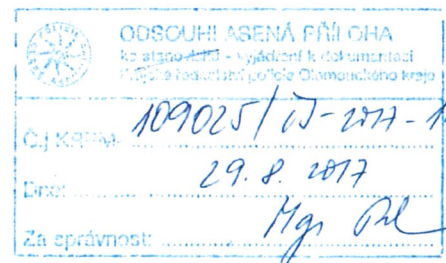 ODSOUHLASENÁ PŘÍLOHA
ke stanovisku - vyjádření k dokumentaci
Krajské ředitelství policie Olomouckého kraje
Č.j. KRPM- 109025/ČJ-2017-1
Dne: 29. 8. 2017
Za správnost: Mgr.